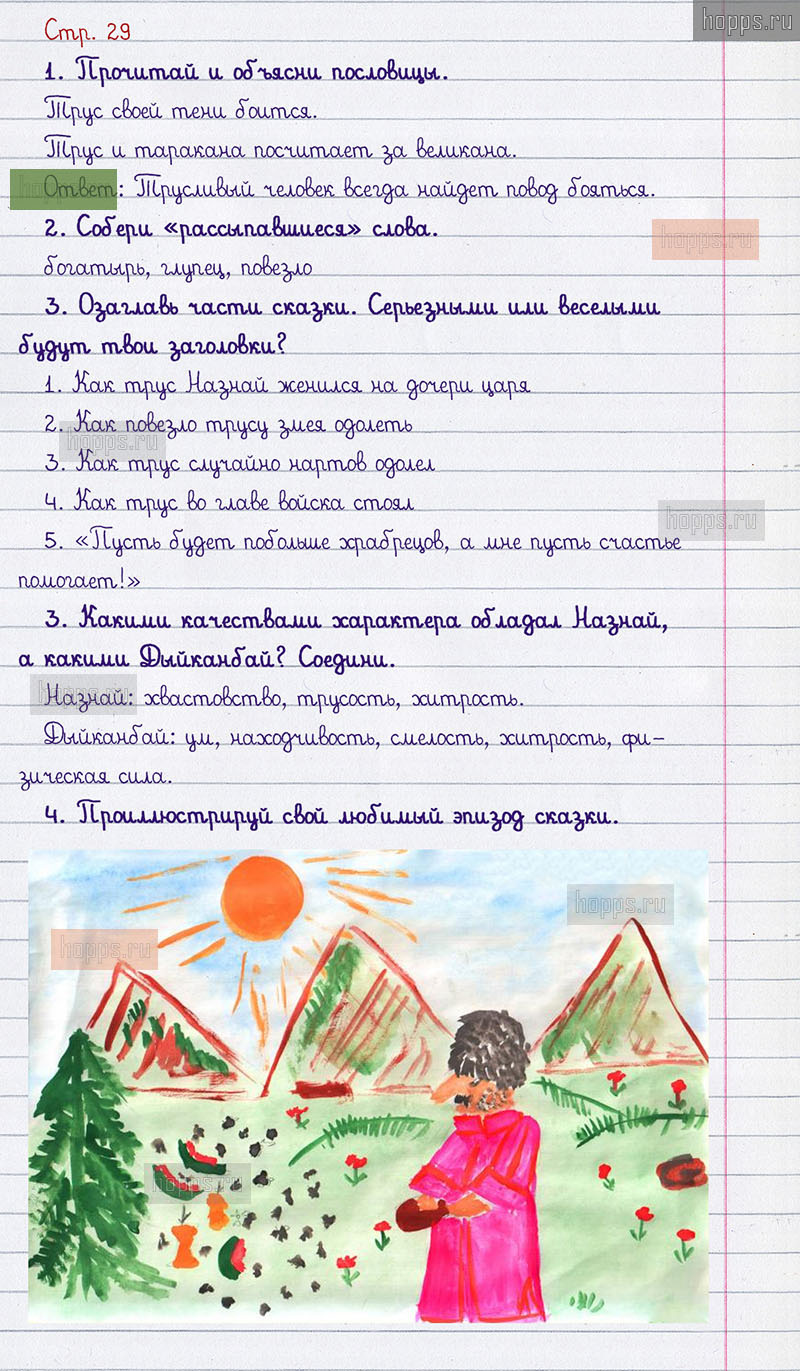 hopps.ru
Стр. 29
1. Прочитай и объясни пословицы.
Трус своей тени боится.
Трус и таракана посчитает за великана.
Ответ: Трусливый человек всегда найдет повод бояться.
2. Собери «рассыпавшиеся» слова.
hopps.ru
богатырь, глупец, повезло
3. Озаглавь части сказки. Серьезными или веселыми
будут твои заголовки?
1. Как трус Назнай женился на дочери царя
2. Как повезло трусу змея одолеть
hopps.ru
3. Как трус случайно нартов одолел
4. Как трус во главе войска стоял
hopps.ru
5. «Пусть будет побольше храбрецов, а мне пусть счастье
помогает!»
3. Какими качествами характера обладал Назнай,
а какими Дыйканбай? Соедини.
Назнай: хвастовство, трусость, хитрость.
Дыйканбай: ум, находчивость, смелость, хитрость, фи-
зическая сила.
4. Проиллюстрируй свой любимый эпизод сказки.
hopps.ru
hopps.ru
hopps.ru